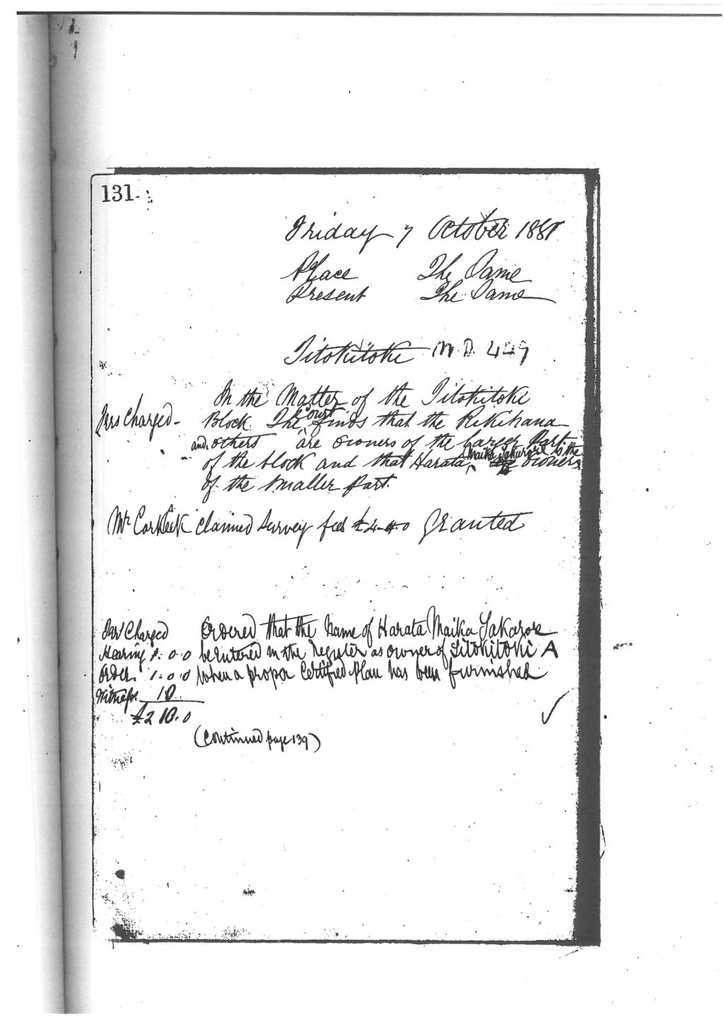 131
Friday 7 October 1881
Place The Same
Present The Same
Titokitoki W.D. 449
In the Matter of the Titokitoki
Charged - Block. The Court finds that the Rikihana
and others are owners of the larger Part
of the block and that Harata Maika to the owners
of the smaller Part.
Mr Cork claimed Survey fees £4-4-0 Granted
Charged Ordered that the Name of Harata Maika Takarore
Hearing 1.0.0 be Entered in the register as owner of Titokitoki A
Order 1.0.0 when a proper Certified Plan has been furnished
Witness 10
£2 10.0
(Continued page 139)